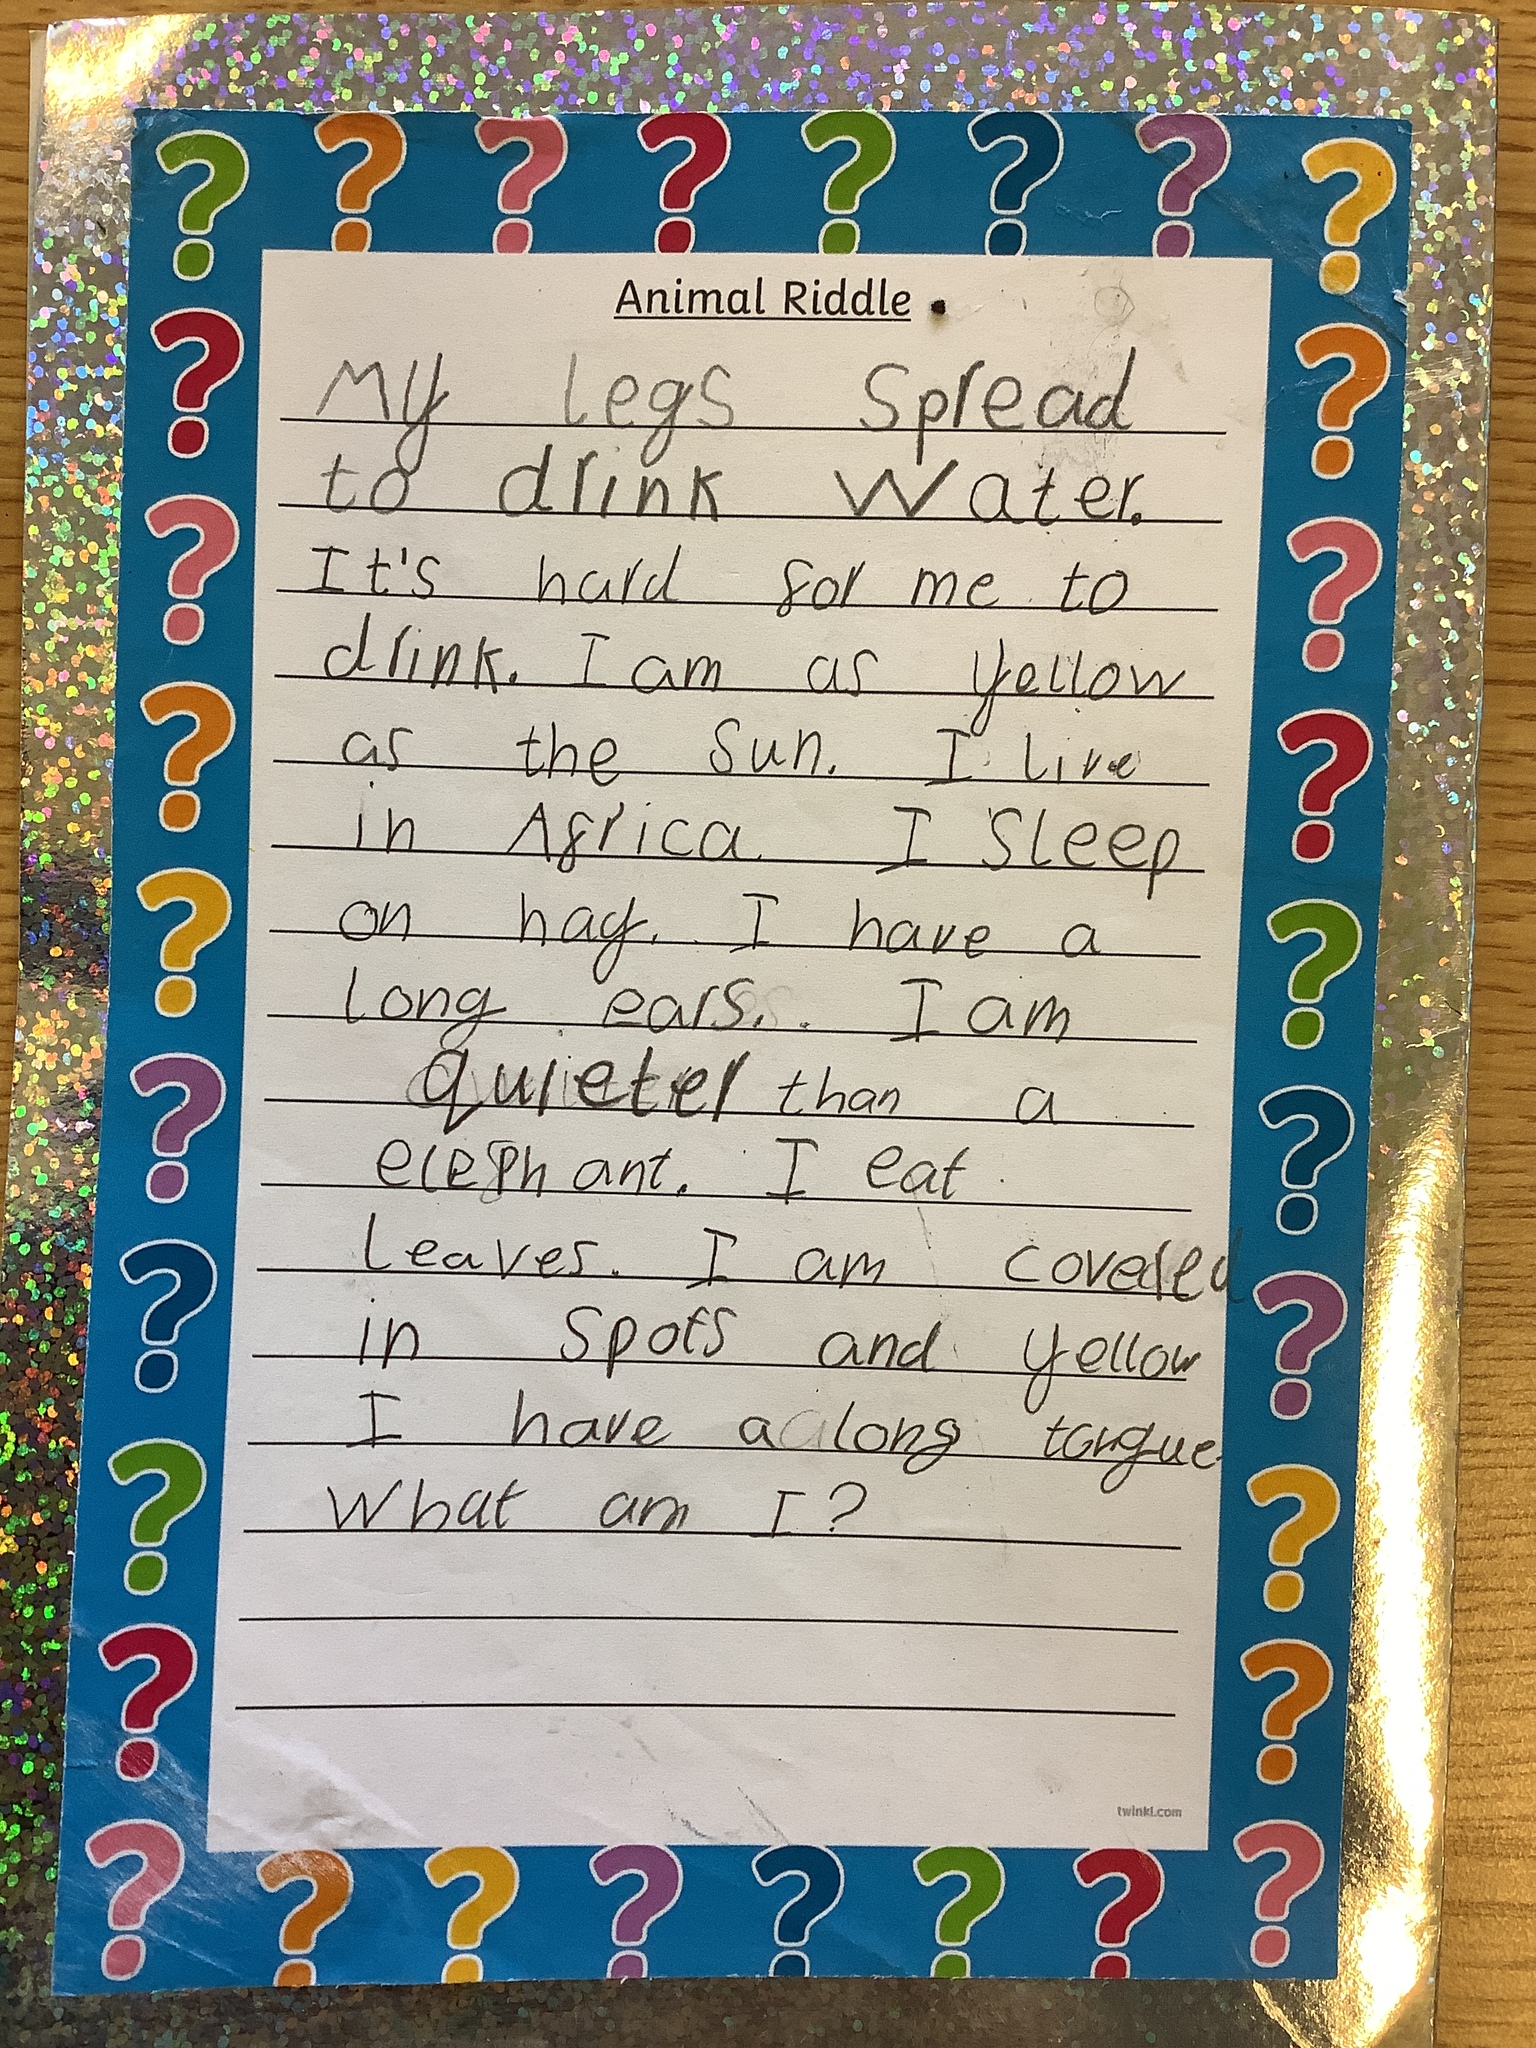 Animal Riddle
My legs spread
to drink water.
It's hard for me to
drink. I am as yellow
as the sun. I live
in Africa. I sleep
on hay. I have a
long ears. I am
quieter than a
elephant. I eat
leaves. I am covered
in spots and yellow
I have a long tongue.
What am I?
twinkl.com